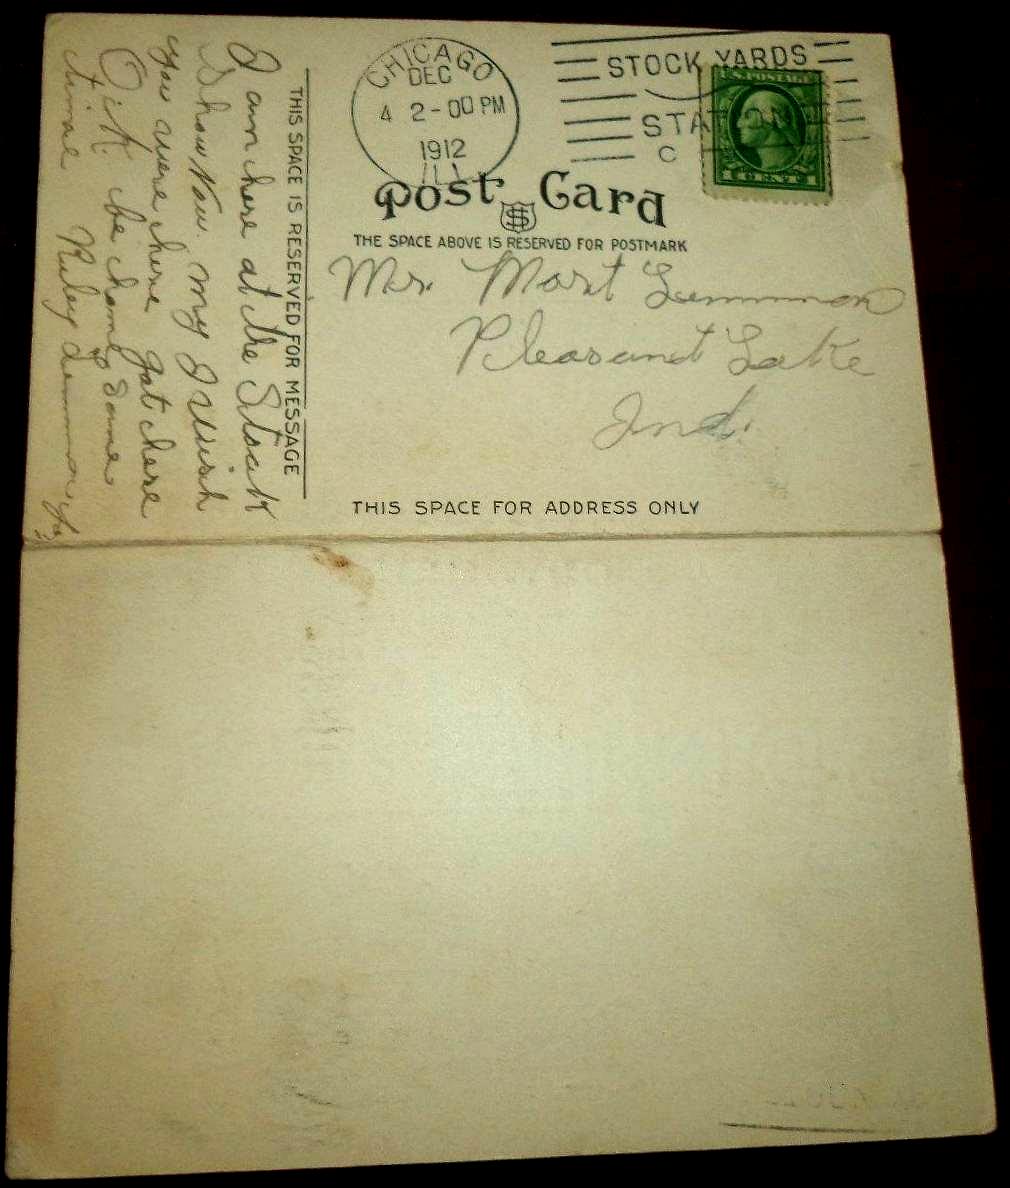 CHICAGO
DEC
4 2-00 PM
1912
ILL
STOCK YARDS
STATION
C
U.S. POSTAGE
1 CENT 1
Post Card
THE SPACE ABOVE IS RESERVED FOR POSTMARK
Mr. Mort Lemmon
Pleasant Lake
Ind.
THIS SPACE FOR ADDRESS ONLY
THIS SPACE IS RESERVED FOR MESSAGE
I am here at the Stock
Show Now. my I wish
you were here gat here
O.K. be home some
time Ruley Lemmon